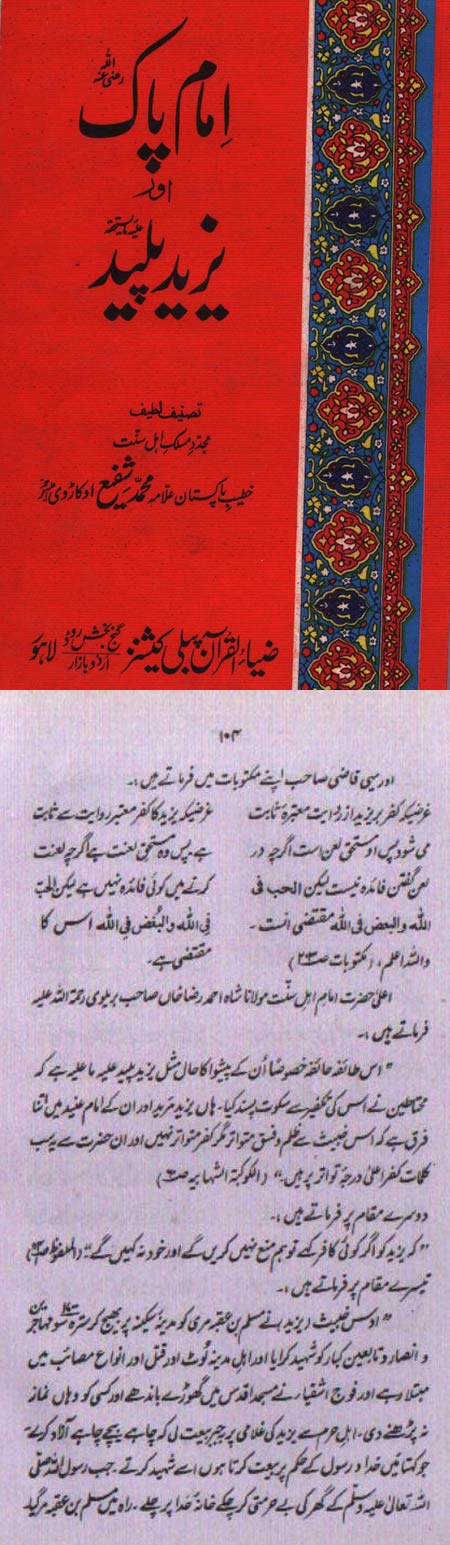 امام پاک
رضی اللہ عنہ
اور
یزید پلید
تصنیف لطیف
مجدد مسلک اہل سنت
خطیب پاکستان علامہ محمد شفیع اوکاڑوی
ضیاء القرآن پبلی کیشنز گنج بخش روڈ اردو بازار لاہور
۱۰۴
اور یہی قاضی صاحب اپنے مکتوبات میں فرماتے ہیں :۔
غرضیکہ کفر بر یزید از روایت معتبرہ ثابت
می شود پس او مستحق لعن است اگرچہ در
لعن گفتن فائدہ نیست لیکن الحب فی
اللہ والبغض فی اللہ مقتضی انست ۔
واللہ اعلم ، (مکتوبات ص۲۰۳)
غرضیکہ یزید کا کفر معتبر روایت سے ثابت
ہے۔ پس وہ مستحق لعنت ہے اگرچہ لعنت
کرنے میں کوئی فائدہ نہیں ہے لیکن الحب
فی اللہ والبغض فی اللہ اس کا
مقتضی ہے۔
اعلیٰ حضرت امام اہل سنت مولانا شاہ احمد رضا خاں صاحب بریلوی رحمۃ اللہ علیہ
فرماتے ہیں :۔
"اس طائفہ حائفہ خصوصاً اُن کے پیشوا کا حال مثل یزید پلید علیہ ما علیہ ہے کہ
محتاطین نے اس کی تکفیر سے سکوت پسند کیا۔ ہاں یزید مرید اور ان کے امام عنید میں اتنا
فرق ہے کہ اس خبیث سے ظلم و فسق متواتر مگر کفر متواتر نہیں اور ان حضرت سے یہ سب
کلمات کفر اعلیٰ درجۂ تواتر پر ہیں۔" (الکوکبۃ الشہابیہ ص)
دوسرے مقام پر فرماتے ہیں :۔
"کہ یزید کو اگر کوئی کافر کہے تو ہم منع نہیں کریں گے اور خود نہ کہیں گے" (الملفوظ ص)
تیسرے مقام پر فرماتے ہیں :۔
"اوس خبیث (یزید) نے مسلم بن عقبہ مری کو مدینہ سکینہ پر بھیج کر سترہ سو مہاجرین
و انصار و تابعین کبار کو شہید کرایا اور اہل مدینہ لُوٹ اور قتل اور انواع مصائب میں
مبتلا رہے اور فوج اشقیاء نے مسجد اقدس میں گھوڑے باندھے اور کسی کو وہاں نماز
نہ پڑھنے دی۔ اہل حرم سے یزید کی غلامی پر جبراً بیعت لی کہ چاہے بیچے چاہے آزاد کرے۔
جو کہتا میں خدا و رسول کے حکم پر بیعت کرتا ہوں اسے شہید کرتے۔ جب رسول اللہ صلی
اللہ تعالیٰ علیہ وسلم کے گھر کی بے حرمتی کر چکے خانہ خدا پر چلے۔ راہ میں مسلم بن عقبہ مر گیا